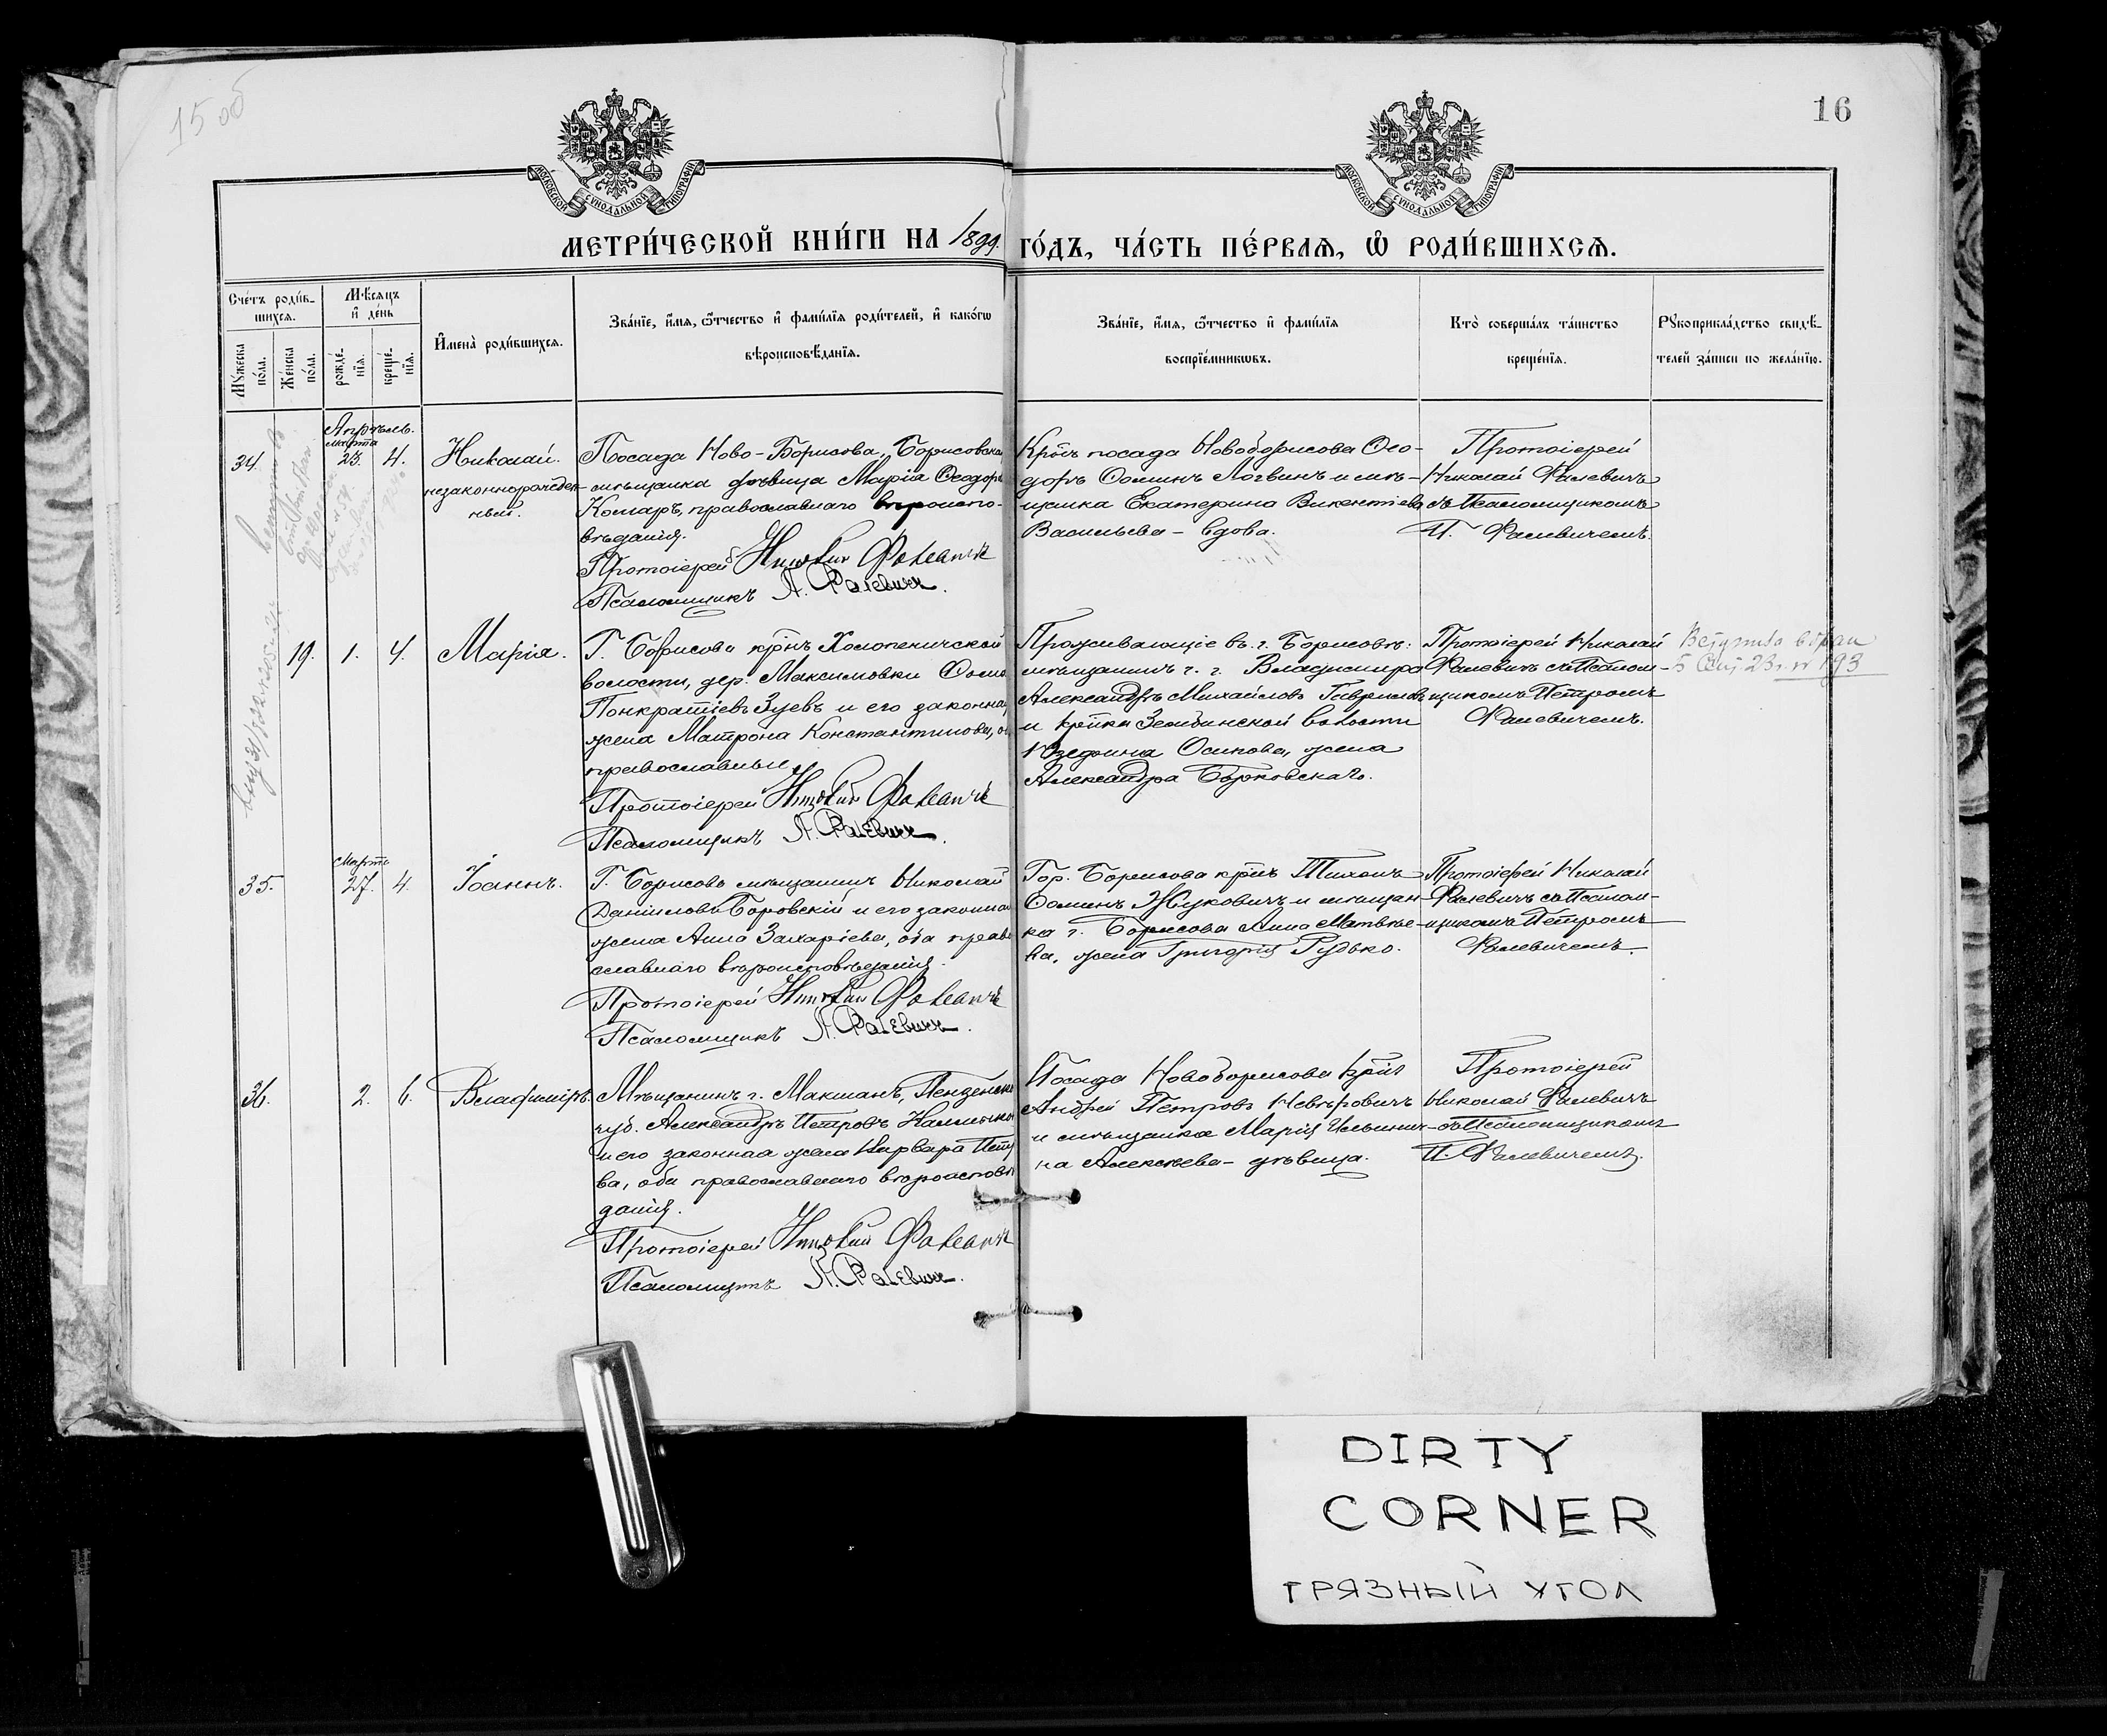 15 об
16
МОСКОВСКОЙ СѴНОДАЛЬНОЙ ТИПОГРАФІИ
МОСКОВСКОЙ СѴНОДАЛЬНОЙ ТИПОГРАФІИ
МЕТРИ́ЧЕСКОЙ КНИ́ГИ НА 1899. ГО́ДЪ, ЧА́СТЬ ПЕ́РВАѦ, Ѿ РОДИ́ВШИХСѦ.
Сче́тъ роди́в-
шихсѧ.
Мꙋжеска по́ла.
Же́нска по́ла.
Мѣ́сѧцъ
и҆ де́нь
рожде́-
нїѧ.
креще́-
нїѧ.
И҆мена̀ роди́вшихсѧ.
Зва́нїе, и҆́мѧ, ѻ҆́тчество и҆ фами́лїѧ роди́телей, и҆ како́гѡ
вѣроисповѣ́данїѧ.
Зва́нїе, и҆́мѧ, ѻ҆́тчество и҆ фами́лїѧ
воспрїе́мникѡвъ.
Кто̀ соверша́лъ та́инство
креще́нїѧ.
Рꙋкоприкла́дство свидѣ́-
телей за́писи по жела́нїю.
Апрѣль.
34.
марта
23.
4.
Николай.
незаконнорожден-
ный.
Посада Ново-Борисова, Борисовская
мѣщанка дѣвица Марія Ѳеодор
Комаръ, православнаго вѣроиспо-
вѣданія.
Протоіерей Николай Фалевичъ
Псаломщикъ П. Фалевичъ.
Крⷭ҇нъ посада Новоборисова Ѳео-
доръ Ѳоминъ Логвинъ и мѣ-
щанка Екатерина Викентіева
Васильева - вдова.
Протоіерей
Николай Фалевичъ
съ Псаломщикомъ
П. Фалевичемъ.
19.
1.
4.
Марія.
Г. Борисова крⷭ҇нъ Холопеничской
волости, дер. Максимовки Ѳома
Понкратіевъ Зуевъ и его законная
жена Матрона Константинова, о
православные.
Протоіерей Николай Фалевичъ
Псаломщикъ П. Фалевичъ.
Проживающіе въ г. Борисовѣ:
мѣщанинъ г. г. Владимира
Александръ Михайловъ Гавриловъ
и крⷭ҇нка Зембинской волости
Юзефина Осипова, жена
Александра Борковскаго.
Протоіерей Николай
Фалевичъ съ Псалом-
щикомъ Петромъ
Фалевичемъ.
Вступила в брак
193
35.
Марта
27.
4.
Іоаннъ.
Г. Борисова мѣщанинъ Николай
Даніиловъ Боровскій и его законная
жена Анна Захаріева, оба право
славнаго вѣроисповѣданія.
Протоіерей Николай Фалевичъ
Псаломщикъ П. Фалевичъ.
Гор. Борисова крⷭ҇нъ Тихонъ
Ѳоминъ Жуковичъ и мѣщан-
ка г. Борисова Анна Матвѣе-
ва, жена Григорія Рудько.
Протоіерей Николай
Фалевичъ съ Псалом-
щикомъ Петромъ
Фалевичемъ.
36.
2.
6.
Владиміръ.
Мѣщанинъ г. Мокшанъ, Пензенск
губ. Александръ Петровъ
и его законная жена Варвара Петр
ва, оба православнаго вѣроисповѣ
данія.
Протоіерей Николай Фалевичъ
Псаломщикъ П. Фалевичъ.
Посада Новоборисова крⷭ҇нъ
Андрей Петровъ Невѣровичъ
и мѣщанка Марія Ильини-
на Алексѣева - дѣвица.
Протоіерей
Николай Фалевичъ
съ Псаломщикомъ
П. Фалевичемъ.
DIRTY
CORNER
ГРЯЗНЫЙ УГОЛ